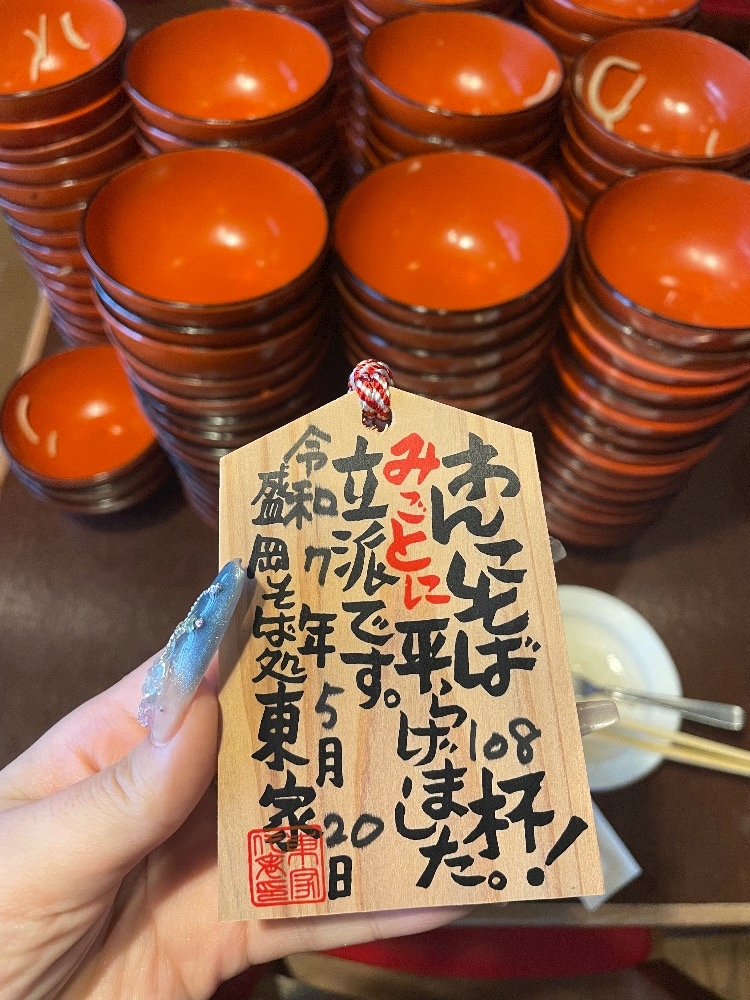 わんこそば108杯!
みごとに平らげました。
立派です。
令和7年5月20日
盛岡そば処東家